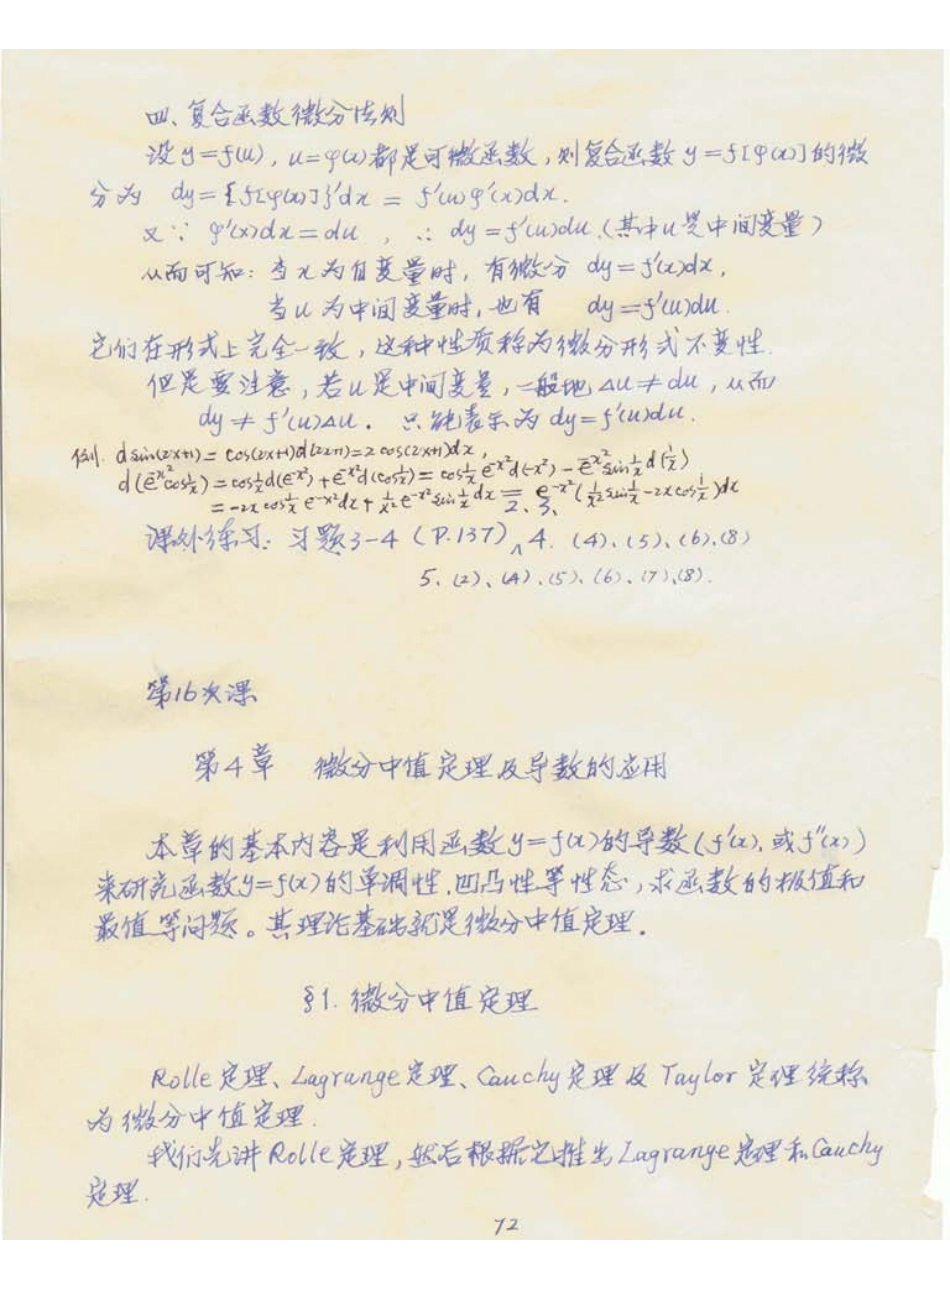 四、复合函数微分法则
设 y=f(u), u=φ(x)都是可微函数,则复合函数 y=f[φ(x)]的微
分为 dy={f[φ(x)]}'dx = f'(u)φ'(x)dx.
又∵ φ'(x)dx=du , ∴ dy=f'(u)du.(其中u是中间变量)
从而可知: 当x为自变量时, 有微分 dy=f'(x)dx,
当u为中间变量时, 也有 dy=f'(u)du.
它们在形式上完全一致, 这种性质称为微分形式不变性.
但是要注意, 若u是中间变量, 一般地 Δu≠du, 从而
dy≠f'(u)Δu. 只能表示为 dy=f'(u)du.
例. d sin(2x+1)=cos(2x+1)d(2x+1)=2cos(2x+1)dx,
d(e^{-x²}cos 1/x)=cos 1/x d(e^{-x²})+e^{-x²}d(cos 1/x)=cos 1/x e^{-x²}d(-x²)-e^{-x²}sin 1/x d(1/x)
=-2x cos 1/x e^{-x²}dx+1/x² e^{-x²}sin 1/x dx = e^{-x²}(1/x² sin 1/x -2x cos 1/x)dx
课外练习: 习题3-4 (P.137) 2、3、 4. (4)、(5)、(6)、(8)
5、(2)、(4)、(5)、(6)、(7)、(8).
第16次课
第4章 微分中值定理及导数的应用
本章的基本内容是利用函数y=f(x)的导数(f'(x), 或f''(x))
来研究函数y=f(x)的单调性,凹凸性等性态, 求函数的极值和
最值等问题。其理论基础就是微分中值定理.
§1. 微分中值定理
Rolle定理、Lagrange定理、Cauchy定理及Taylor定理统称
为微分中值定理.
我们先讲Rolle定理, 然后根据它推出Lagrange定理和Cauchy
定理.
72